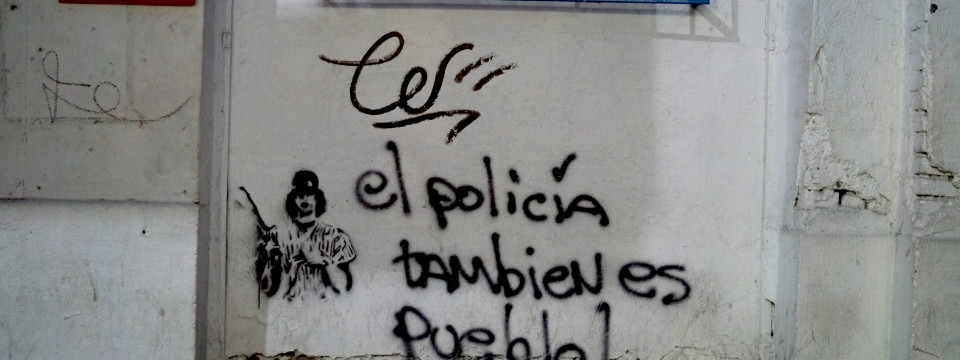 el policía
tambien es
Pueblo!